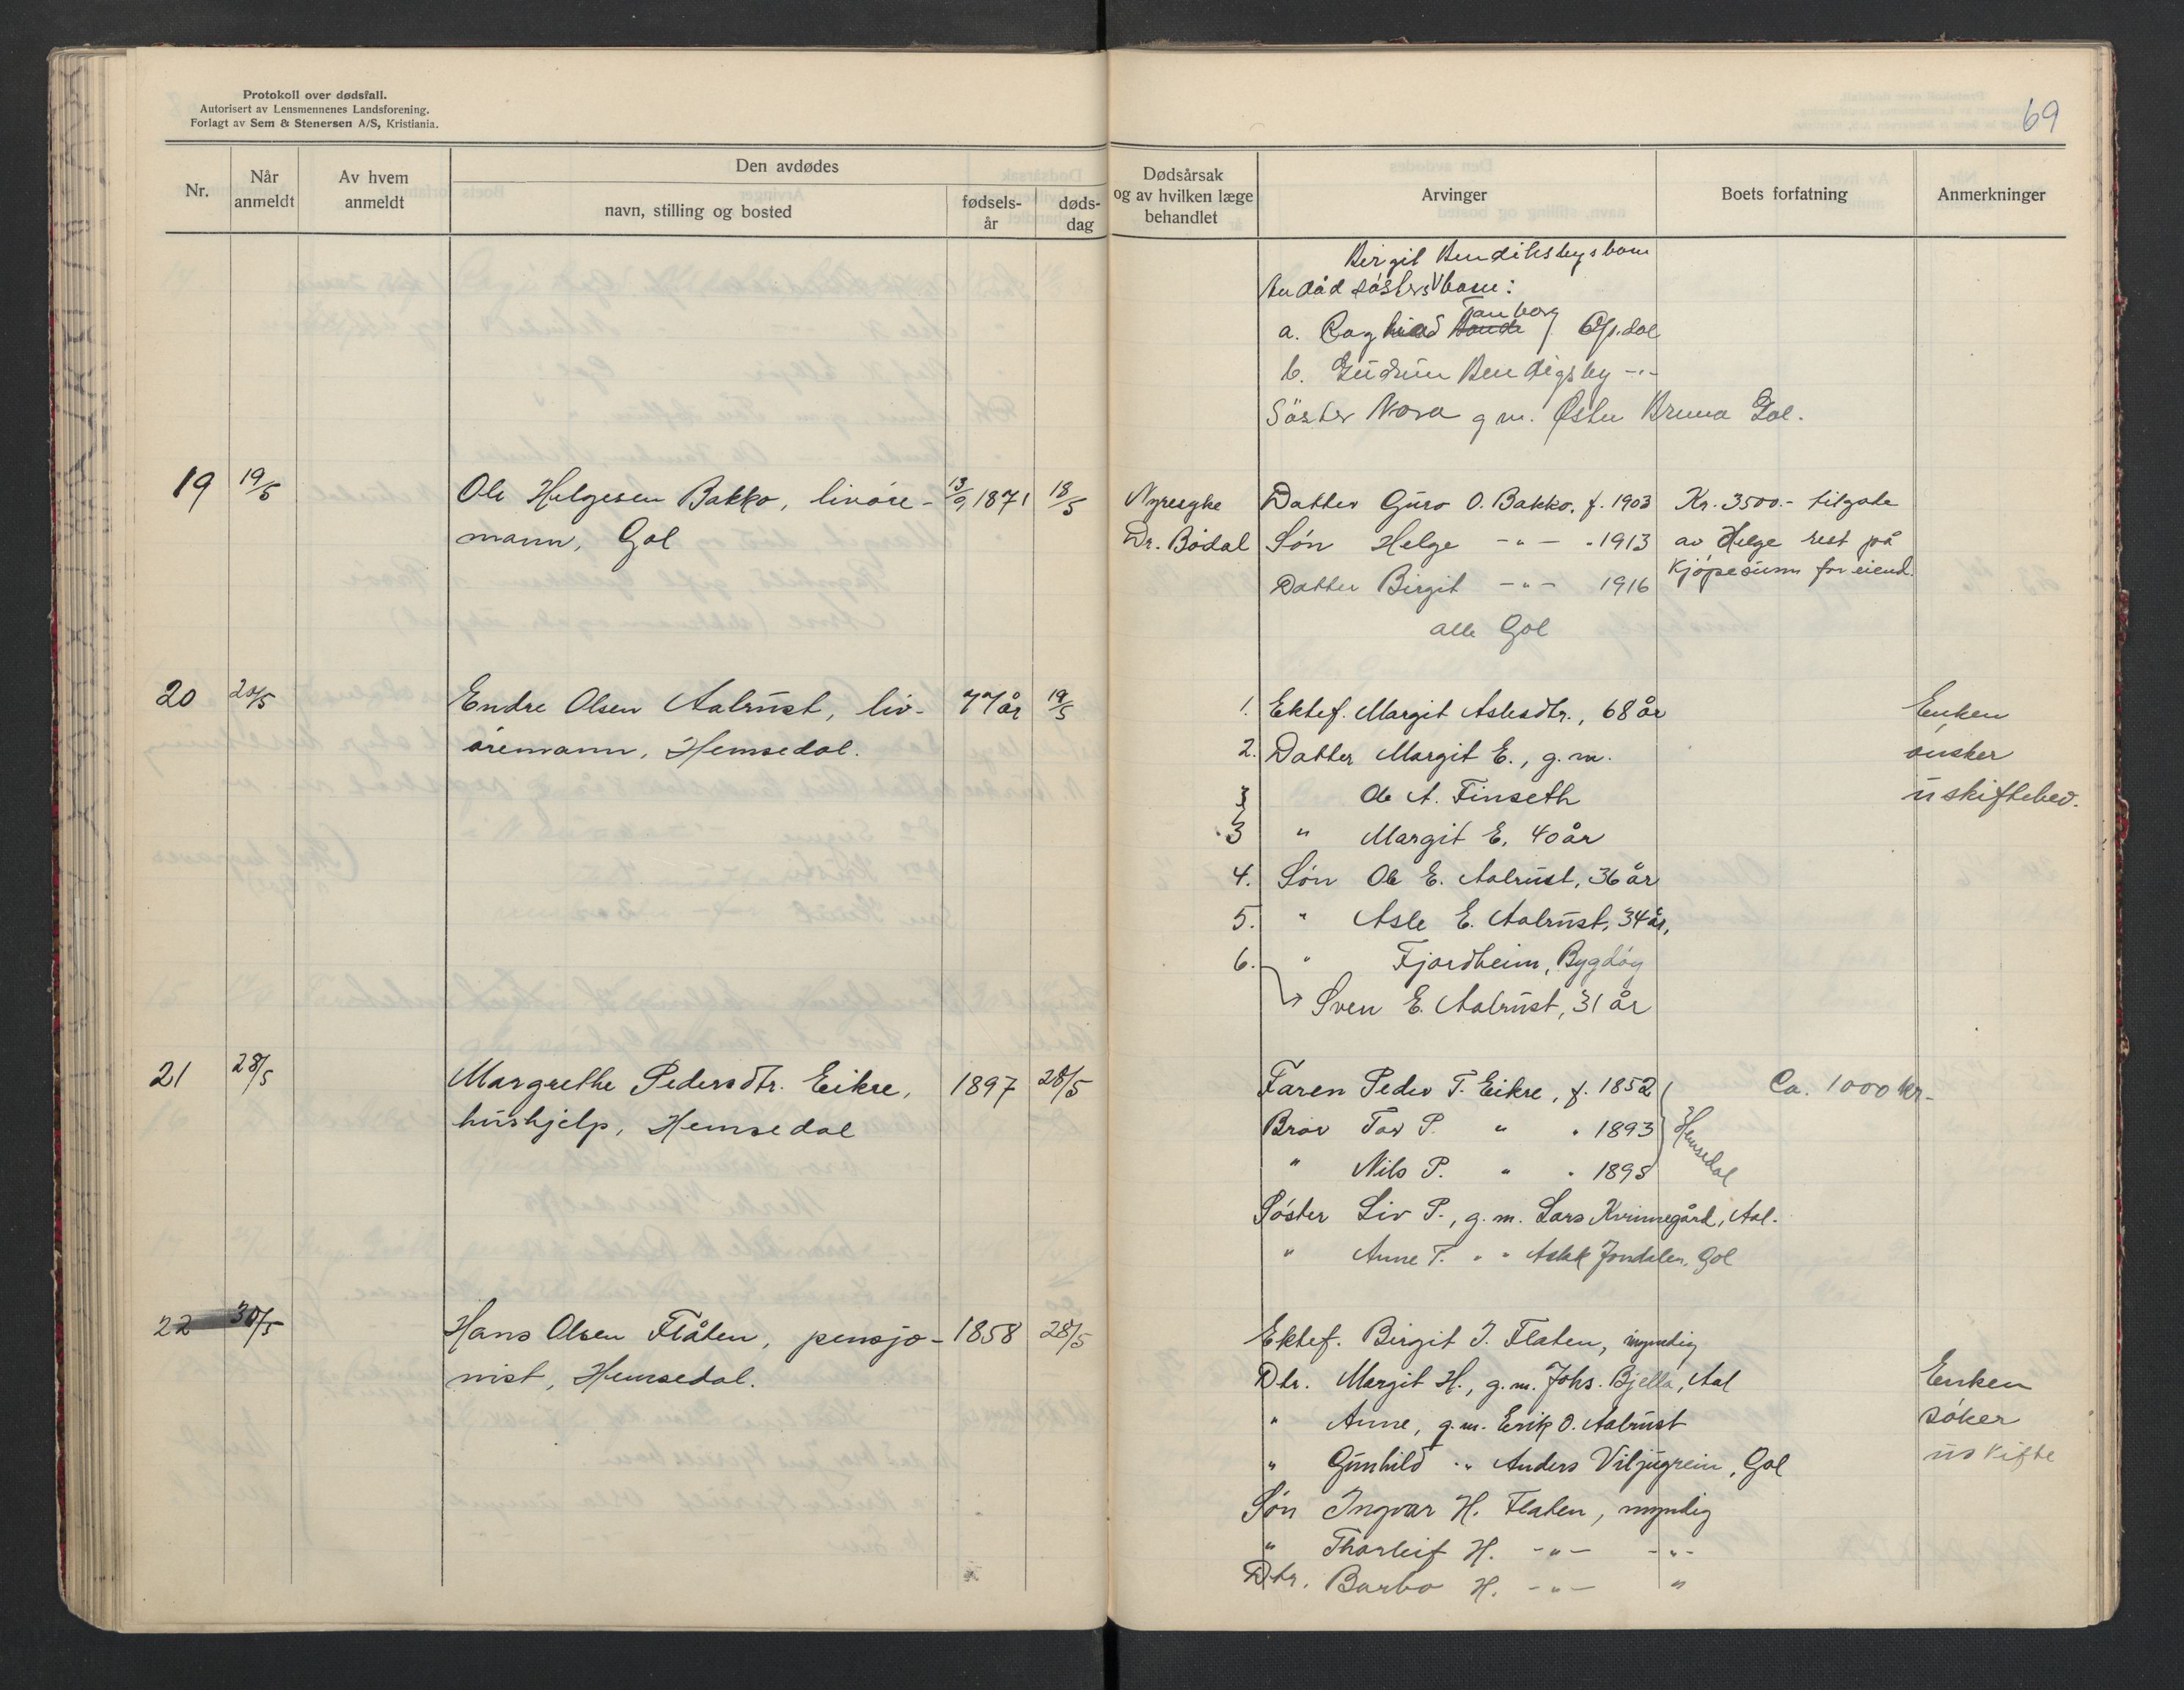 Protokoll over dødsfall.
Autorisert av Lensmennenes Landsforening.
Forlagt av Sem & Stenersen A/S, Kristiania.
69
Nr.
Når anmeldt
Av hvem anmeldt
Den avdødes
navn, stilling og bosted
fødsels-år
døds-dag
Dødsårsak og av hvilken læge behandlet
Arvinger
Boets forfatning
Anmerkninger
Birgit
død søsters barn:
a. Tanberg Opdal
b. Gudrun
Søster Nora g m. Østen Bruna Gol.
19 19/5 Ole Helgesen Bakko, livøre- 13/9 1871 18/5
mann, Gol
Nyresyke
Dr. Bødal
Datter Guro O. Bakko. f. 1903
Søn Helge -"- - 1913
Datter Birgit -"- 1916
alle Gol
Kr. 3500.- tilgode
av Helge rest på
kjøpesum for eiend.
20 20/5 Endre Olsen Aalrust, liv- 77 år 19/5
øremann, Hemsedal.
1. Ektef. Margit Aslesdtr., 68 år
2. Datter Margit E., g.m.
3 Ole A. Finseth
3 " Margit E. 40 år
4. Søn Ole E. Aalrust, 36 år
5. " Asle E. Aalrust, 34 år,
6. " Fjordheim, Bygdøy
Sven E. Aalrust, 31 år
Enken
ønsker
uskiftebev.
21 28/5 Margrethe Pedersdtr. Eikre, 1897 28/5
hushjelp, Hemsedal
Faren Peder T. Eikre, f. 1852
Bror Tor P. " " 1893
" Nils P. " " 1895
Hemsedal
Søster Liv P., g.m. Lars Kvinnegård, Aal.
" Anne P. " " Aslak Jondalen, Gol
Ca. 1000 kr-
22 30/5 Hans Olsen Flåten, pensjo- 1858 28/5
nist, Hemsedal.
Ektef. Birgit J. Flaten, myndig
Dtr. Margit H., g.m. Johs. Bjella, Aal
" Anne, g.m. Erik O. Aalrust
" Gunhild " " Anders Viljugrein, Gol
Søn Ingvar H. Flaten, myndig
" Thorleif H. -"- -"-
Dtr. Barbo H. -"- "
Enken
søker
uskifte